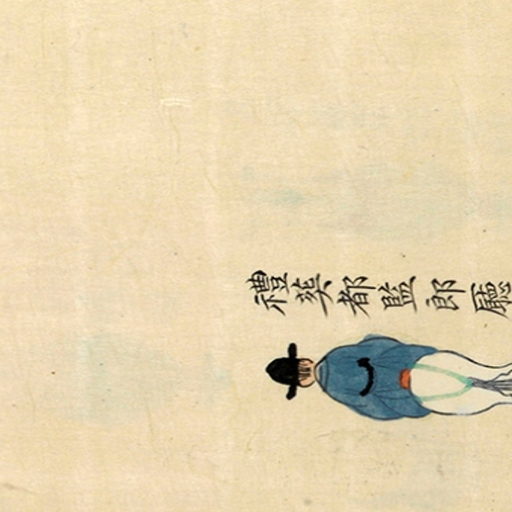 禮葬都監郎廳